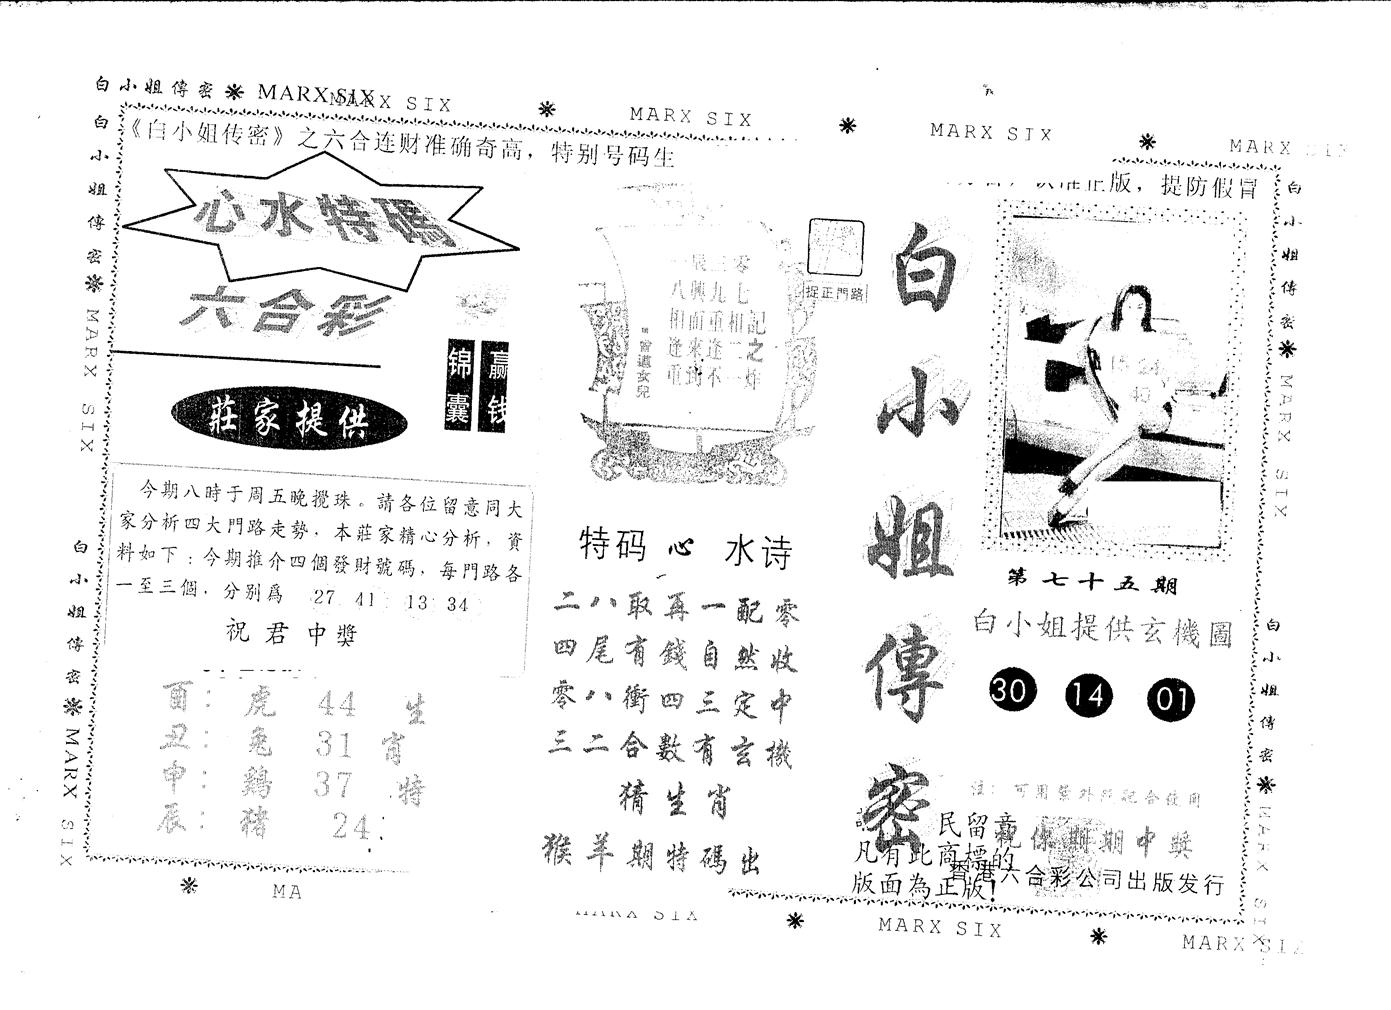 白小姐傳密 ❋ MARX SIX MARX SIX ❋ MARX SIX ❋ MARX SIX ❋ MARX SIX
白小姐傳密 ❋ MARX SIX
白小姐傳密 ❋ MARX SIX
《白小姐传密》之六合连财准确奇高，特别号码生
正版，提防假冒
心水特碼
六合彩
锦囊
赢钱
莊家提供
今期八時于周五晚攪珠。請各位留意同大
家分析四大門路走勢，本莊家精心分析，資
料如下：今期推介四個發財號碼，每門路各
一至三個，分别爲 27 41 13 34
祝君中獎
酉：虎 44 生
丑：兔 31 肖
申：鷄 37 特
辰：猪 24
零七記之炸
三九相二一
重逢不
八相逢重
曾道女兒
捉正門路
特码心水诗
二八取再一配零
四尾有錢自然收
零八衝四三定中
三二合數有玄機
猜生肖
猴羊期特碼出
白小姐傳密
15 24
40
第七十五期
白小姐提供玄機圖
30 14 01
注：可用紫外线配合使用
祝你期期中獎
民留意
凡有此商標的
版面為正版！
香港六合彩公司出版发行
白小姐傳密 ❋ MARX SIX
白小姐傳密 ❋ MARX SIX
❋ MA
MARX SIX ❋ MARX SIX ❋ MARX SIX